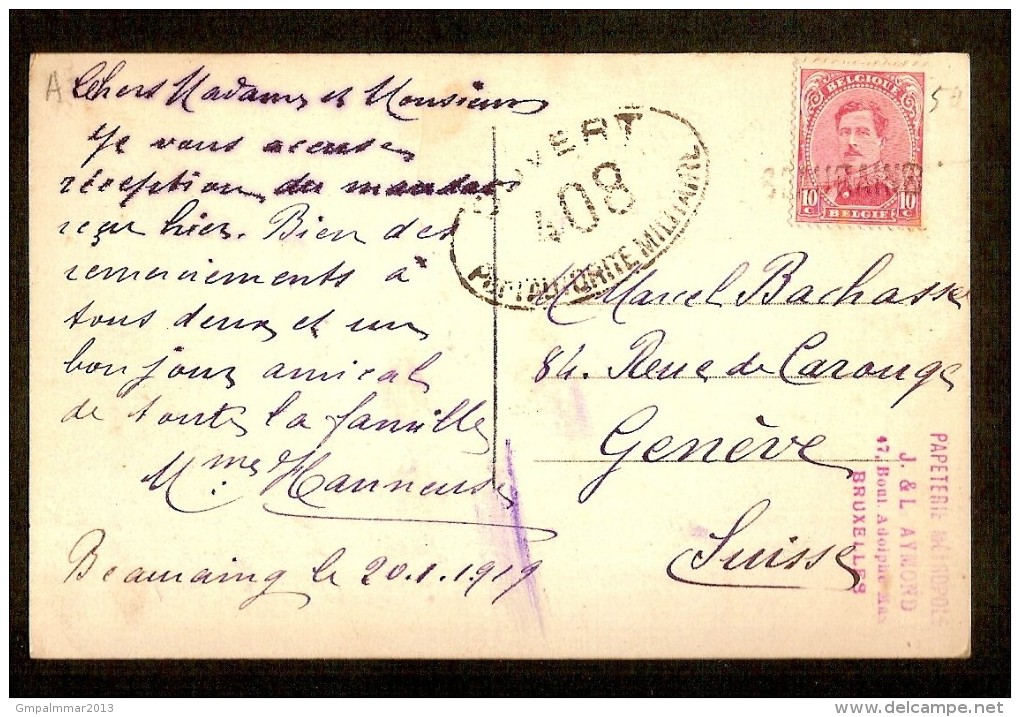 Chers Madame et Monsieur
Je vous accuse
réception du mandat
reçu hier. Bien des
remerciements à
tous deux et un
bonjour amical
de toute la famille
Mme Hanneuse
Beauraing le 20.1.1919
OUVERT
408
Par l'AUTORITE MILITAIRE
BELGIQUE
10 c
10 c
BELGIE
50
M Marcel Bachasse
84. Rue de Carouge
Genève
Suisse
PAPETERIE
J. & L AYMOND
47, Boul. Adolphe Max
BRUXELLES
Gmpalmmar2013
delcampe.net